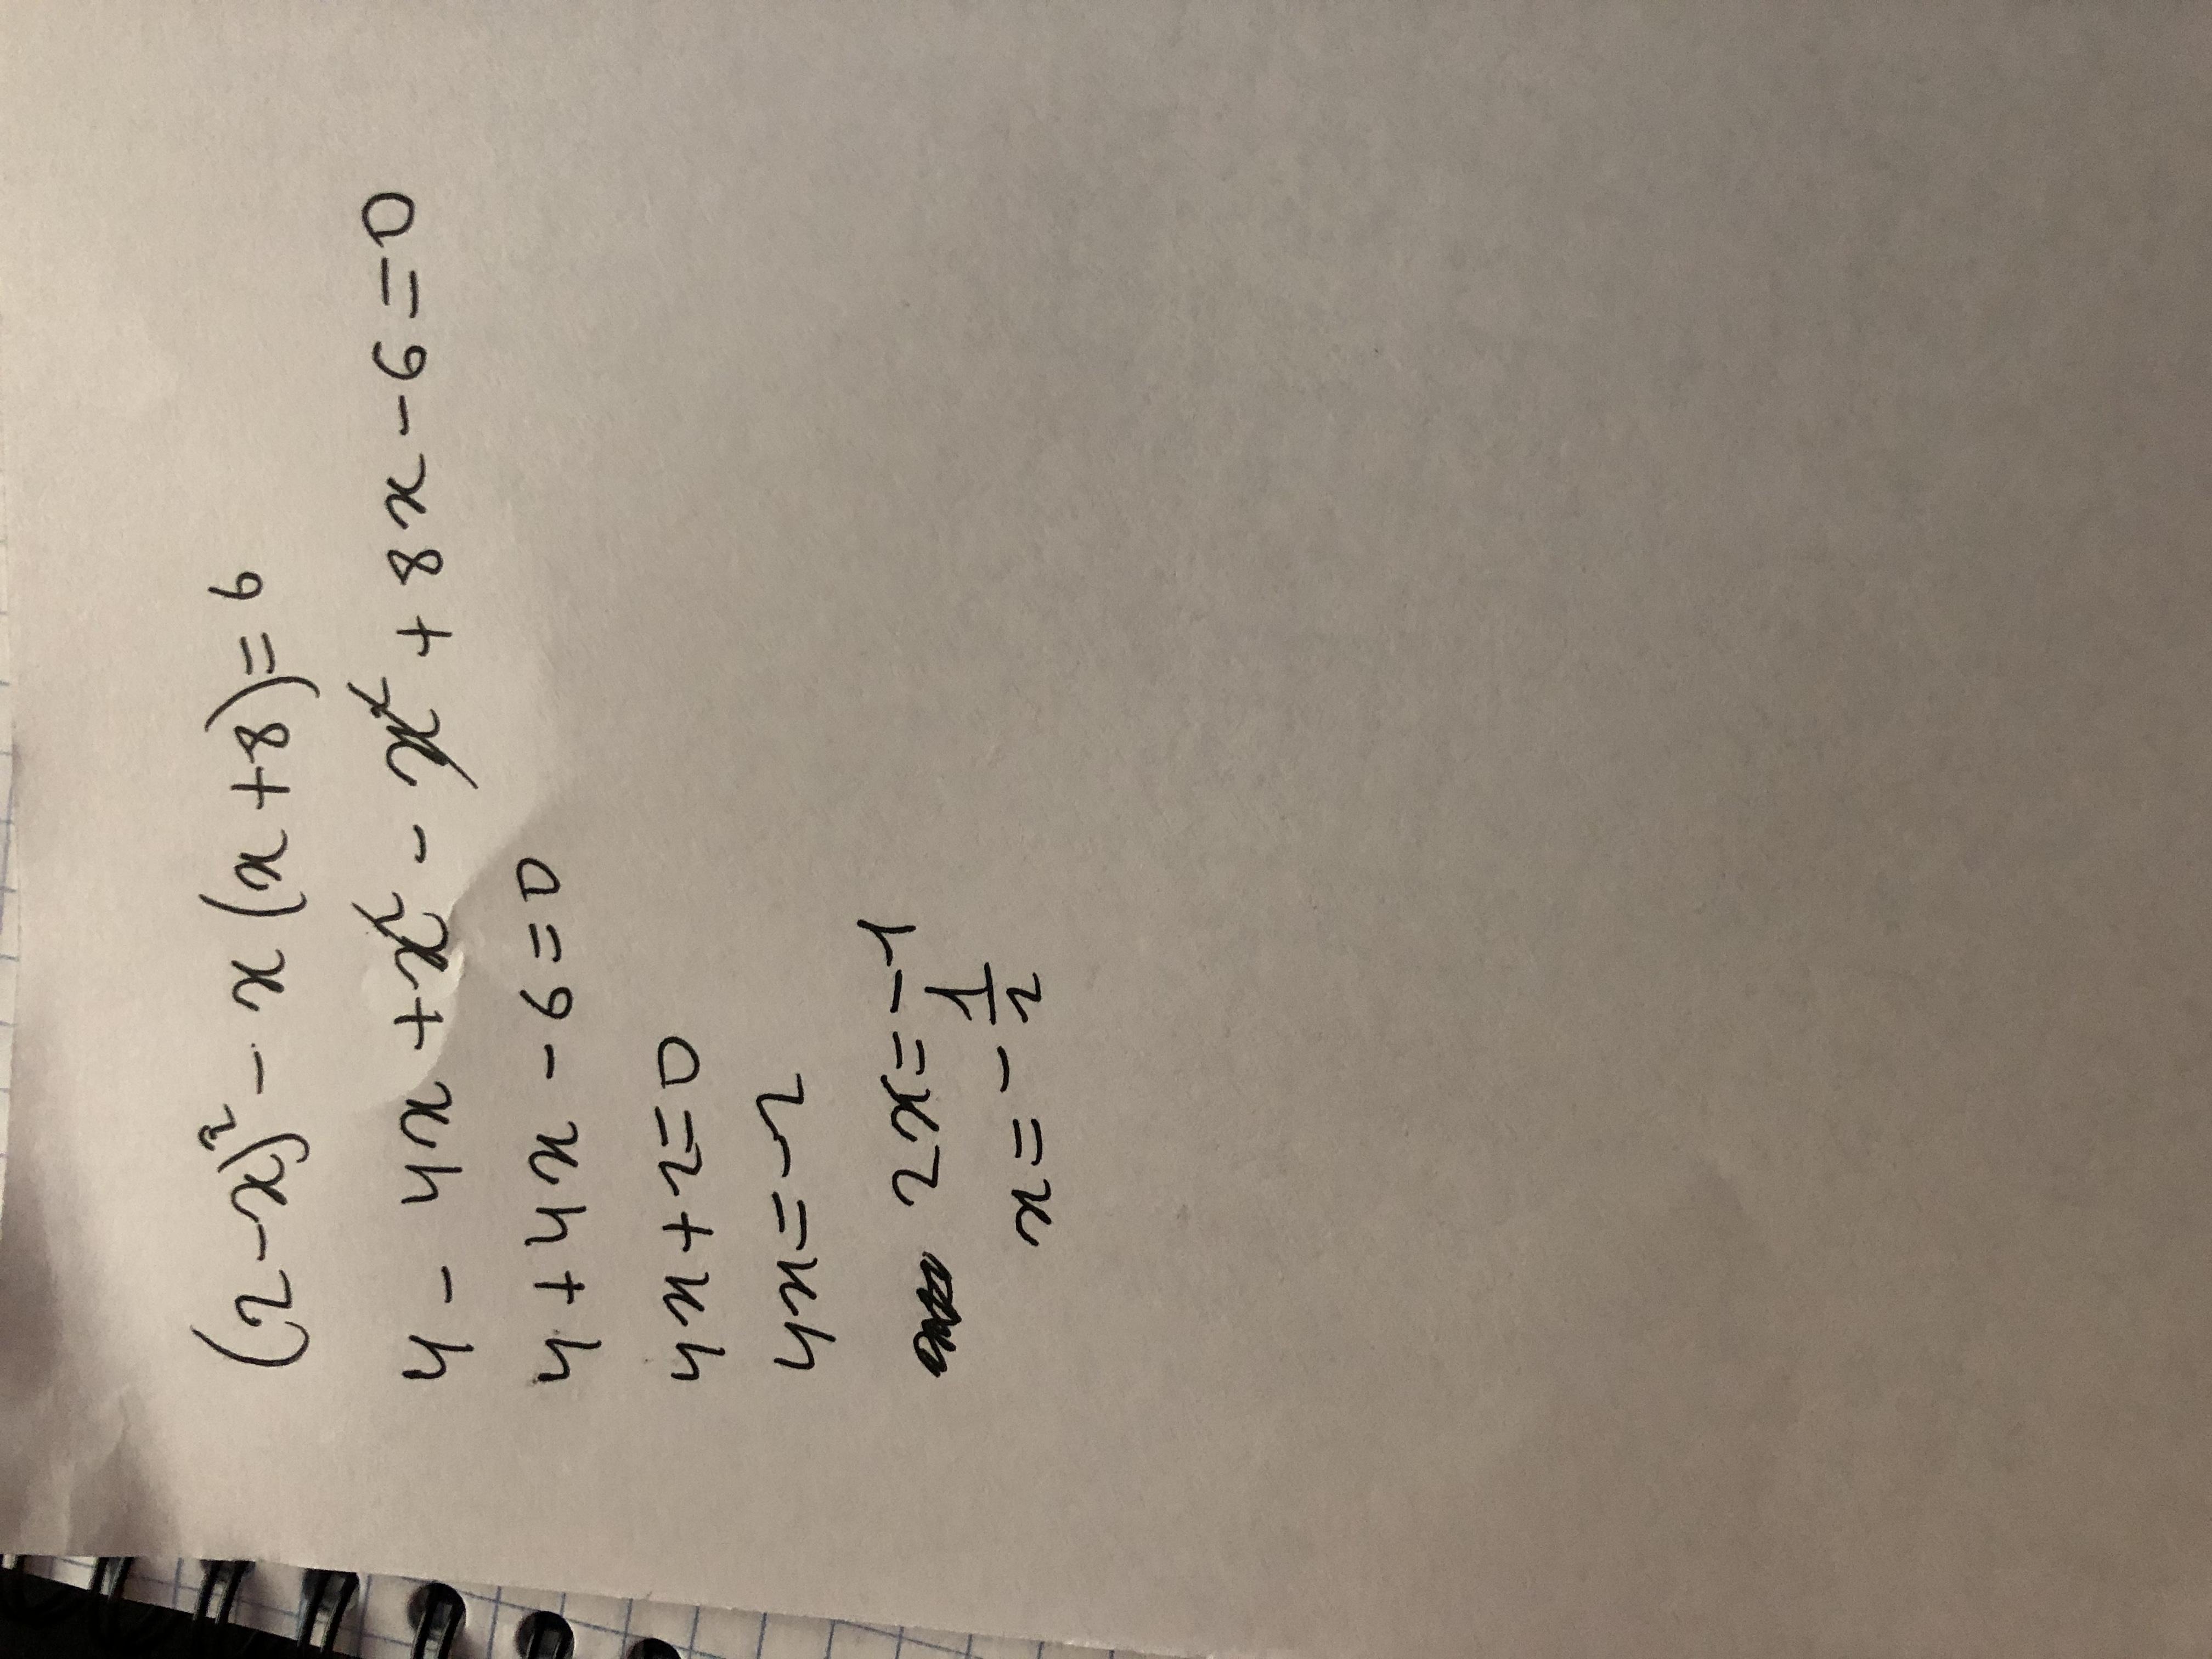 (2-x)² - x(x+8)=6
4 - 4x + x² - x² + 8x - 6 = 0
4 + 4x - 6 = 0
4x + 2 = 0
4x = -2
2x = -1
x = - 1/2